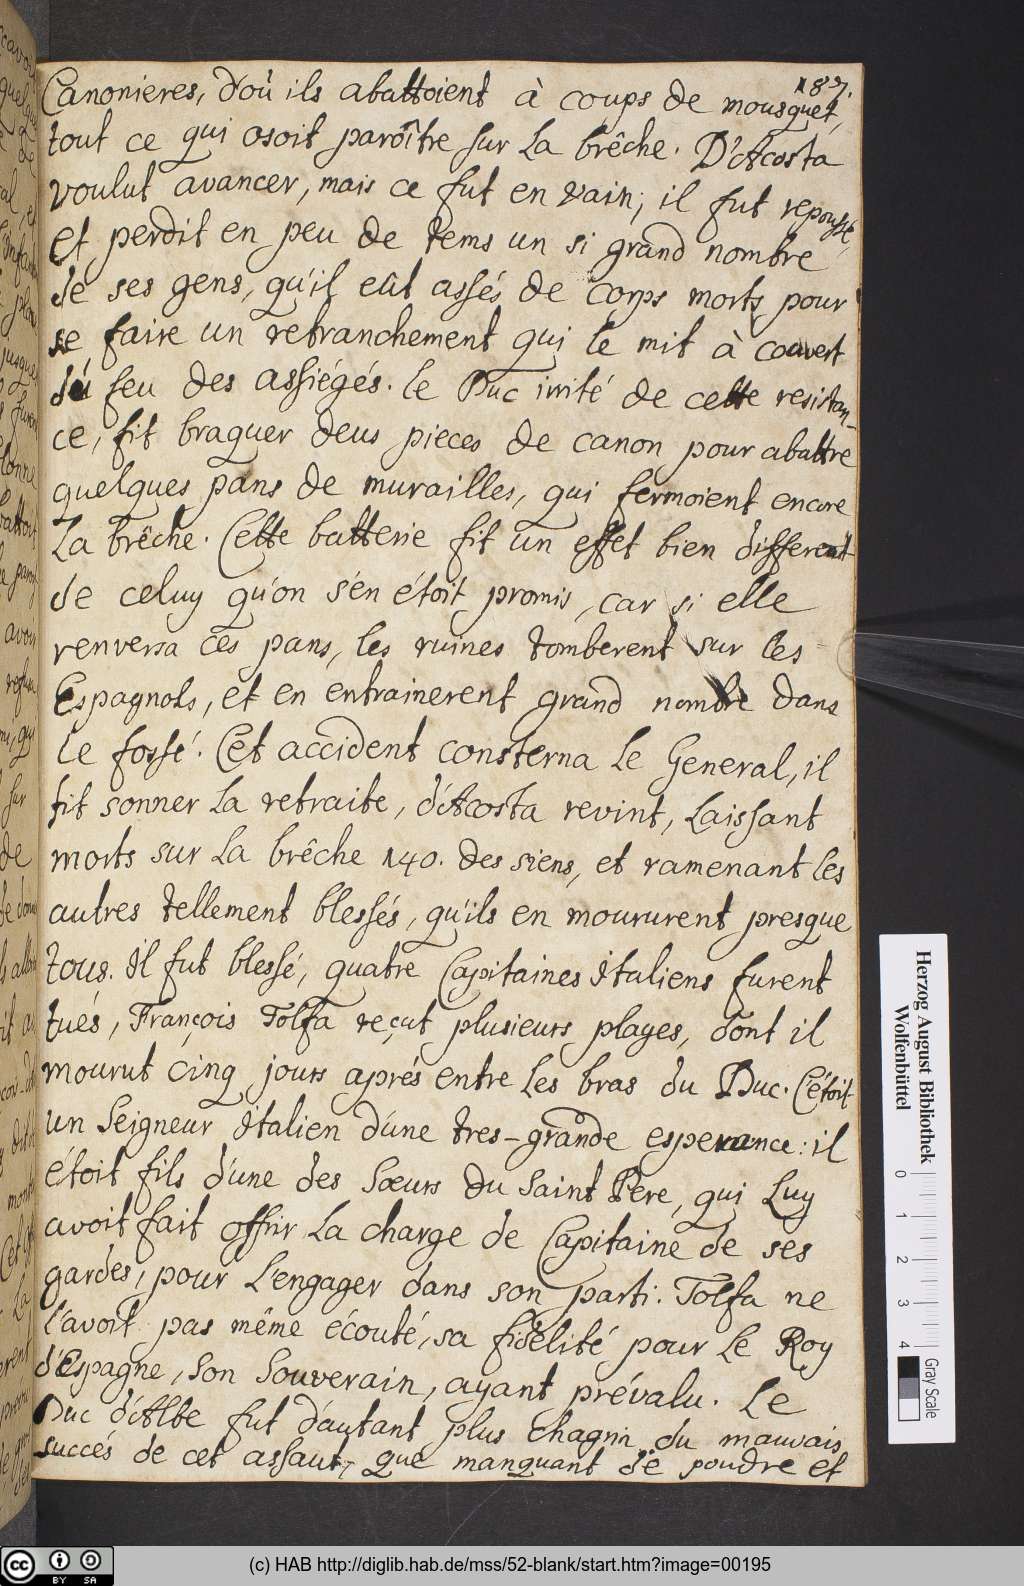 187.
Canonieres, d'où ils abattoient à coups de mousquet,
tout ce qui osoit paroître sur la brêche. D'Acosta
voulut avancer, mais ce fut en vain; il fut repoussé,
et perdit en peu de tems un si grand nombre
de ses gens, qu'il eût assés de corps morts pour
se faire un retranchement qui le mit à couvert
du feu des assiégés. le Duc irrité de cette resistan-
ce, fit braquer deus pieces de canon pour abattre
quelques pans de murailles, qui fermoient encore
la brêche. Cette batterie fit un effet bien different
de celuy qu'on s'en étoit promis, car si elle
renversa ces pans, les ruines tomberent sur les
Espagnols, et en entrainerent grand nombre dans
le fossé. Cet accident consterna le General, il
fit sonner la retraite, d'Acosta revint, laissant
morts sur la brêche 140. des siens, et ramenant les
autres tellement blessés, qu'ils en moururent presque
tous. Il fut blessé, quatre Capitaines Italiens furent
tués, François Tolfa reçut plusieurs playes, dont il
mourut cinq jours aprés entre les bras du Duc. C'étoit
un Seigneur Italien d'une tres-grande esperance: il
étoit fils d'une des Sœurs du Saint Pere, qui luy
avoit fait offrir la charge de Capitaine de ses
gardes, pour l'engager dans son parti. Tolfa ne
l'avoit pas même écouté, sa fidelité pour le Roy
d'Espagne, son Souverain, ayant prévalu. Le
Duc d'Albe fut d'autant plus chagrin du mauvais
succés de cet assaut, que manquant de poudre et
Herzog August Bibliothek
Wolfenbüttel
0 1 2 3 4
Gray Scale
cc BY SA
(c) HAB http://diglib.hab.de/mss/52-blank/start.htm?image=00195